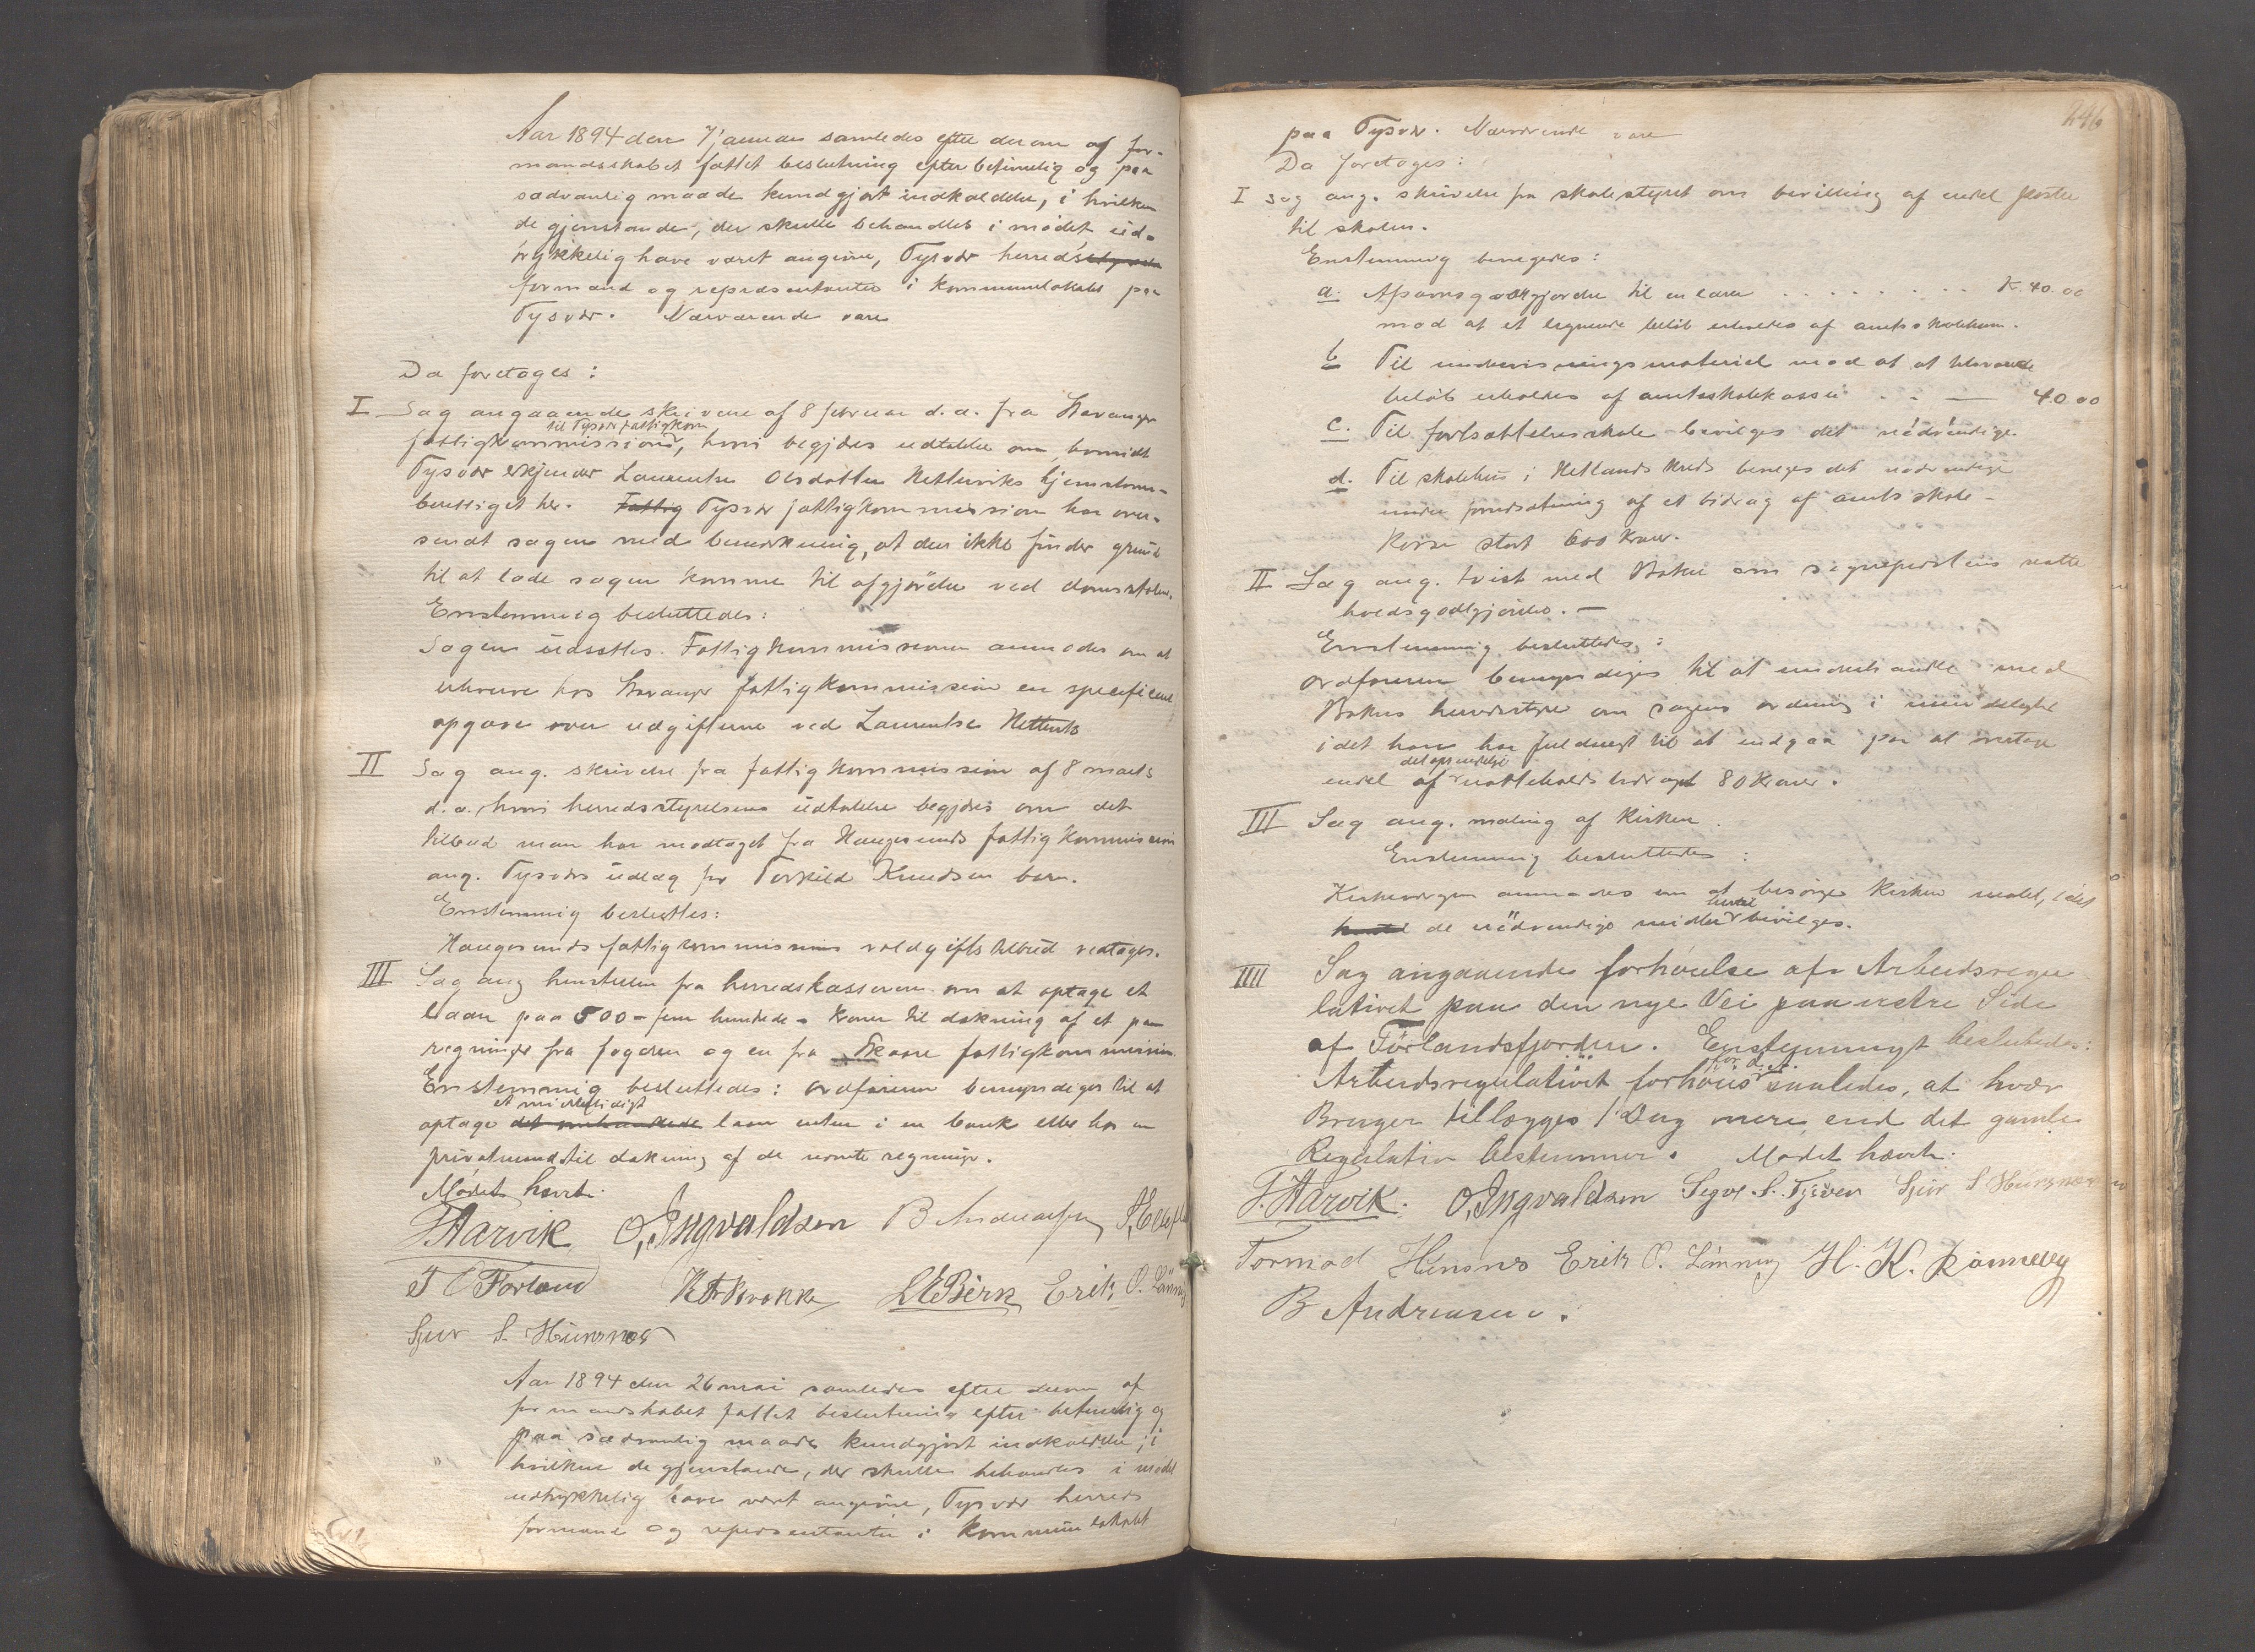 Aar 1894 den samledes efter derom af for-
mandskabet fattet beslutning efter betimelig og paa
sædvanlig maade kundgjort indkaldelse, i hvilken
de gjenstande, der skulle behandles i mødet ud-
trykkelig have været angivne, Tysvær herreds
formænd og repræsentanter i kommunelokalet paa
Tysvær. Nærværende vare
Da foretoges:
I Sag angaaende skrivelse af 8 februar d. a. fra Stavanger
til Tysvær fattigkom
fattigkommission, hvori begjæres udtalelse om, hvorvidt
Tysvær erkjender Laurentse Olsdatter Hetterviks hjemstavns-
berettiget her. Fattig Tysvær fattigkommission har over-
sendt sagen med bemærkning, at den ikke finder grund
til at lade sagen komme til afgjørelse ved domstolen.
Enstemmig besluttedes:
Sagen udsættes. Fattigkommissionen anmodes om at
erhverve hos Stavanger fattigkommission en specificeret
opgave over udgifterne ved Laurentse
II Sag ang. skrivelse fra fattigkommission af 8 marts
d. a., hvori herredsstyrelsens udtalelse begjæres om det
tilbud man har modtaget fra Haugesunds fattigkommission
ang. Tysværs udlæg for Torkild Knudsen barn.
Enstemmig besluttes:
Haugesunds fattigkommissions voldgifts tilbud vedtages.
III Sag ang henstillen fra herredskassereren om at optage et
laan paa 500 - fem hundrede - kroner til dækning af et par
regninger fra fogden og en fra Skaare fattigkommission.
Enstemmig besluttedes: Ordføreren bemyndiges til at
et midlertidigt
optage laan enten i en bank eller hos en
privatmand til dækning af de nævnte regninger.
Mødet hævet.
T. Aarvik O, Ingvaldsen B Andreassen
T O Førland L E Birk Erik O. Lønning
Sjur S. Hünsnes
Aar 1894 den 26 mai samledes efter derom af
formandskabet fattet beslutning efter betimelig og
paa sædvanlig maade kundgjort indkaldelse, i
hvilken de gjenstande, der skulle behandles i mødet
udtrykkelig have været angivne, Tysvær herreds
formænd og repræsentanter i kommunelokalet
246
paa Tysvær. Nærværende vare
Da foretoges:
I Sag ang. skrivelse fra skolestyret om bevilling af endel poster
til skolen.
Enstemmig bevilgedes:
a. til en lærer . . . . . . . . K. 40.00
mod at et lignende beløb erholdes af amtsskolekassen.
b Til undervisningsmateriel mod at et tilsvarende
beløb erholdes af amtsskolekassen . . — 40 00
c. Til fortsættelsesskole bevilges det nødvendige
d. Til skolehus i Hetlands kreds bevilges det nødvendige
under forudsætning af et bidrag af amtsskole-
kasse stort 600 kroner.
II Sag ang. tvist med Bokn om natte
holdsgodtgjørelse. —
Enstemmig besluttedes:
Ordføreren bemyndiges til at underhandle med
Bokns herredsstyre om sagens ordning i mindelighed
idet han har fuldmagt til at indgaa paa at
det oprindelige
endel af natteholds bidraget 80 kroner.
III Sag ang. maling af kirken.
Enstemmig besluttedes:
Kirkeværgen anmodes om at besørge kirken malet, idet
hertil
de nødvendige midler bevilges.
IIII Sag angaaende forhøielse af Arbeidsregu
lativet paa den nye Vei paa vestre Side
af Førlandsfjorden. Enstemmigt beslutedes:
Arbeidsregulativet forhøies saaledes, at hvær
Bruger tillægges 1 Dag mere end det gamle
Regulativ bestemmer. Mødet hævet.
T. Aarvik. O, Ingvaldsen Sjur S Hünsnes
Tormod Erik O. Lønning H. K.
B Andreasen.